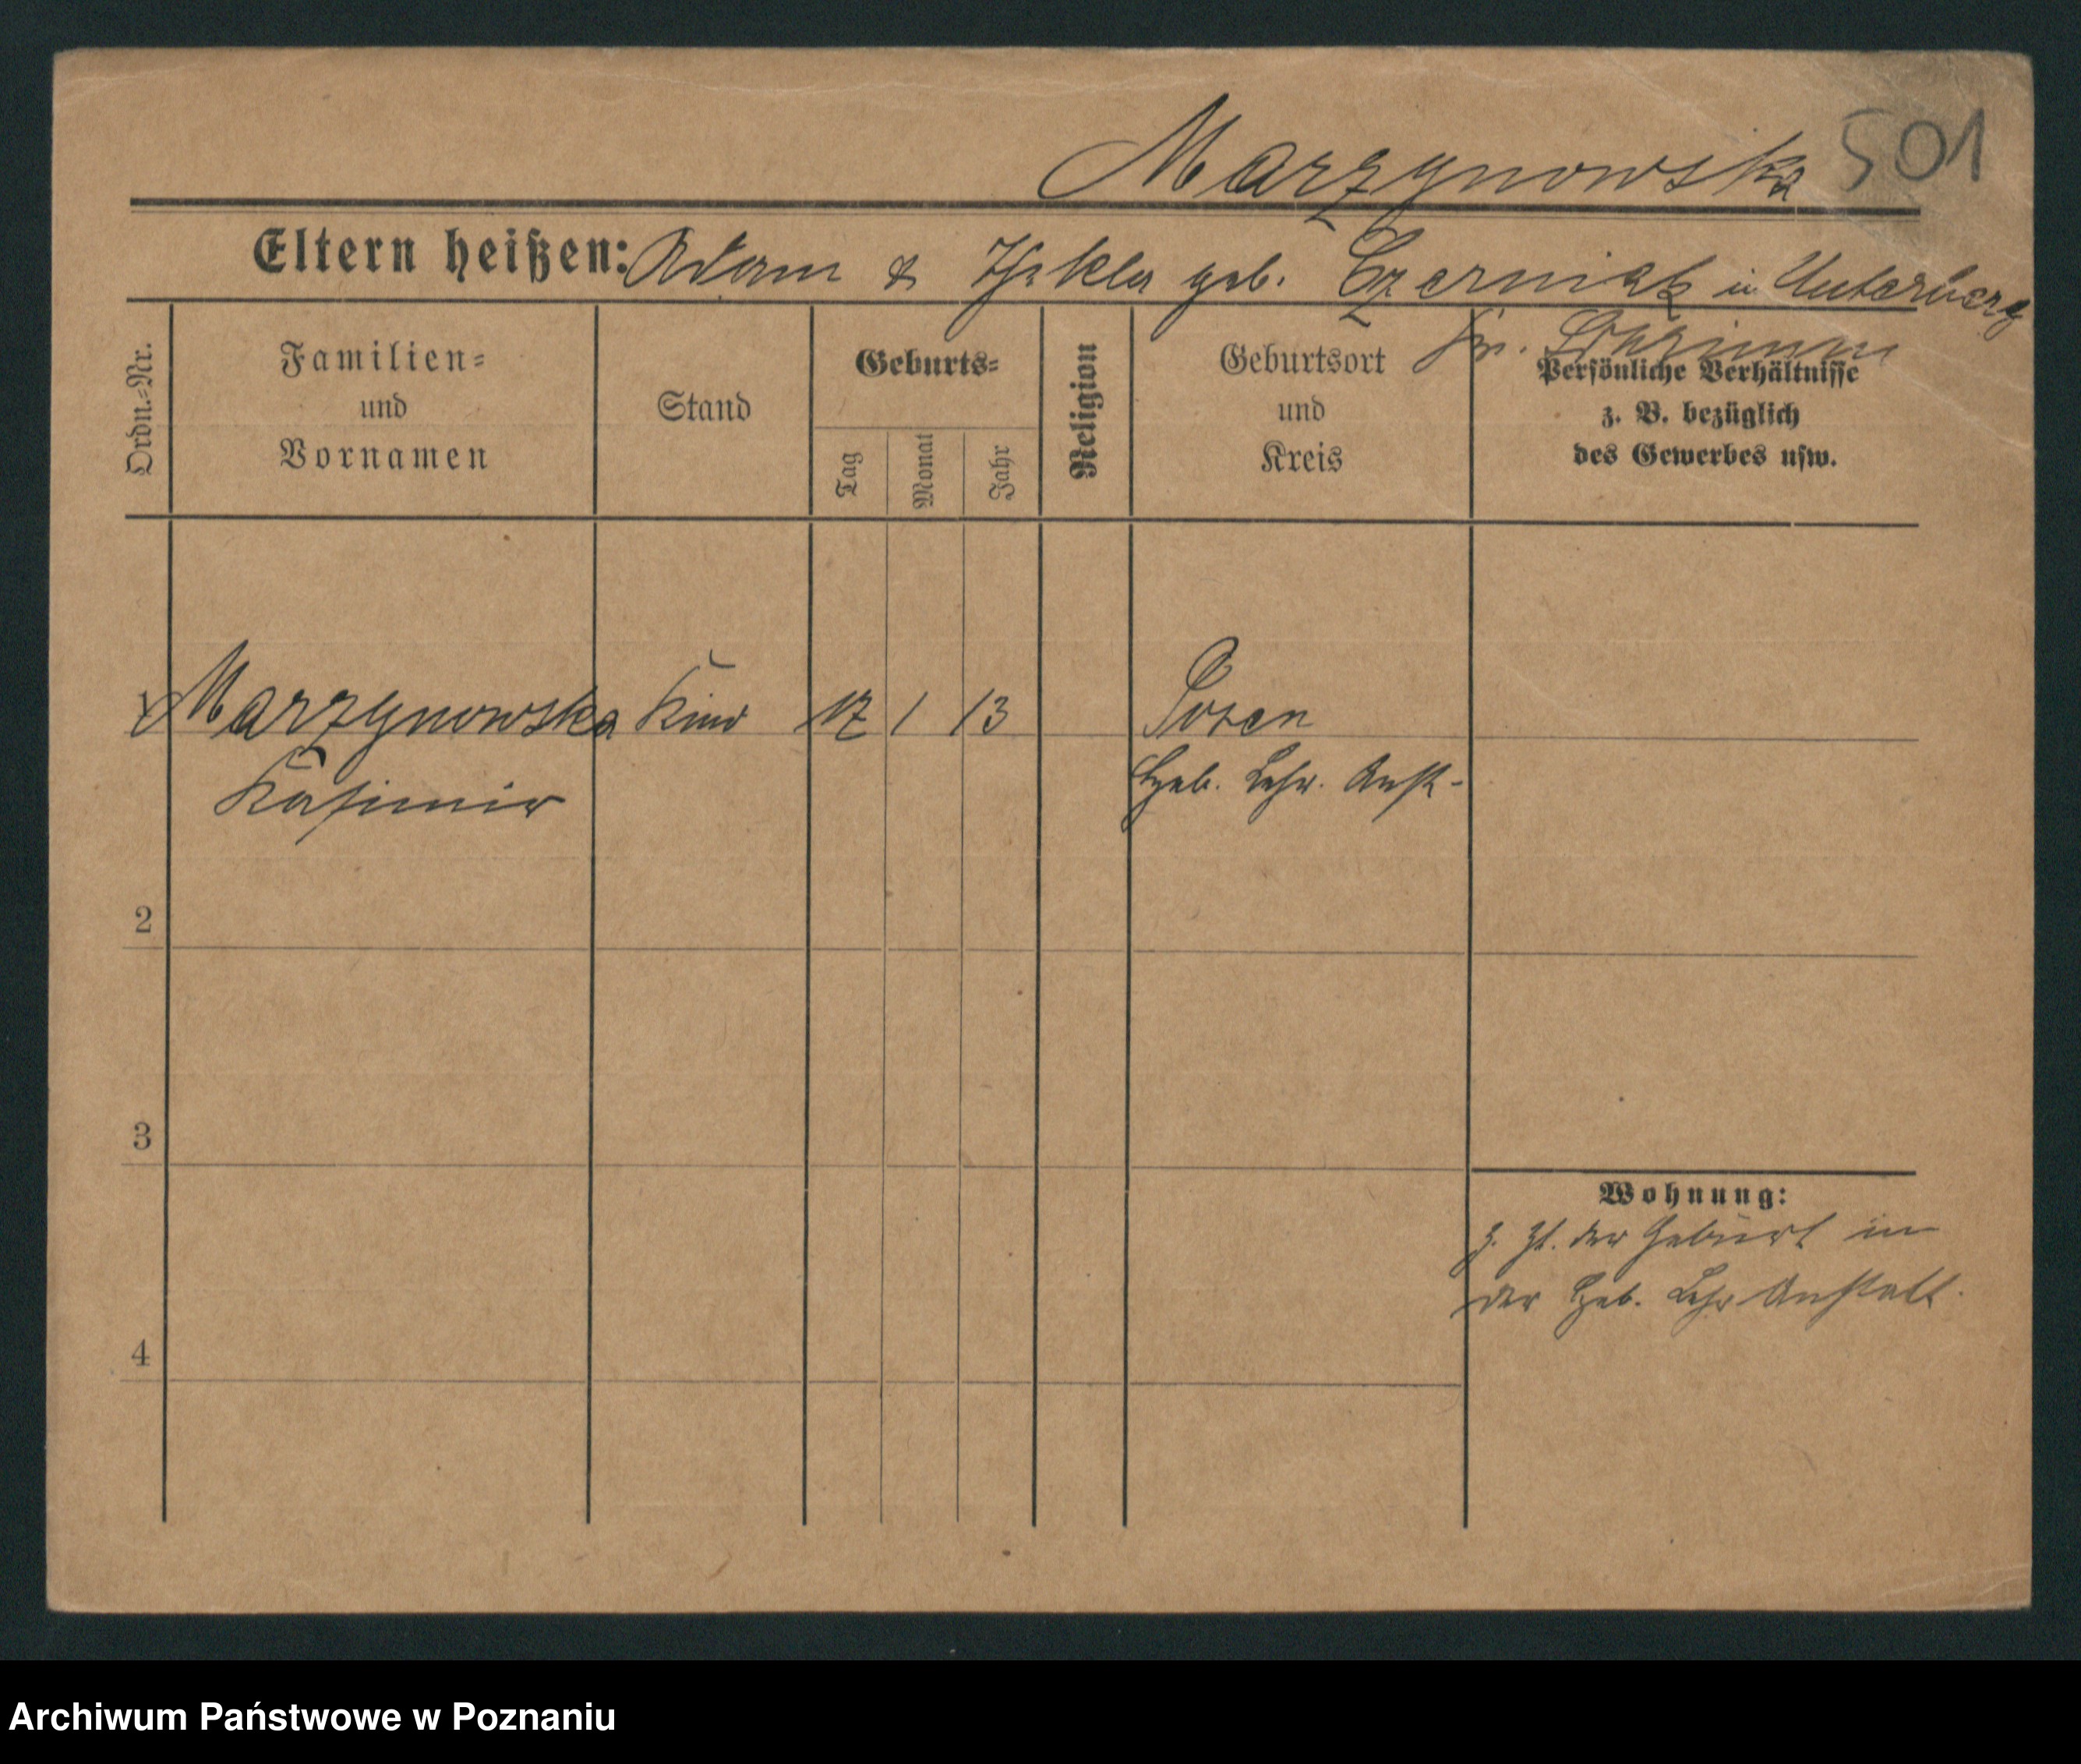 Marzynowska 501
Eltern heißen: Adam & Thekla geb. Czerniak in Unterberg
Kr. Schrimm
Ordn.-Nr.
Familien-
und
Vornamen
Stand
Geburts-
Tag
Monat
Jahr
Religion
Geburtsort
und
Kreis
Persönliche Verhältnisse
z. B. bezüglich
des Gewerbes usw.
1 Marzynowska Kind 17 1 13 Posen
Kasimir Heb. Lehr. Anst-
2
3
4
Wohnung:
z. Zt. der Geburt in
der Heb. Lehr Anstalt.
Archiwum Państwowe w Poznaniu